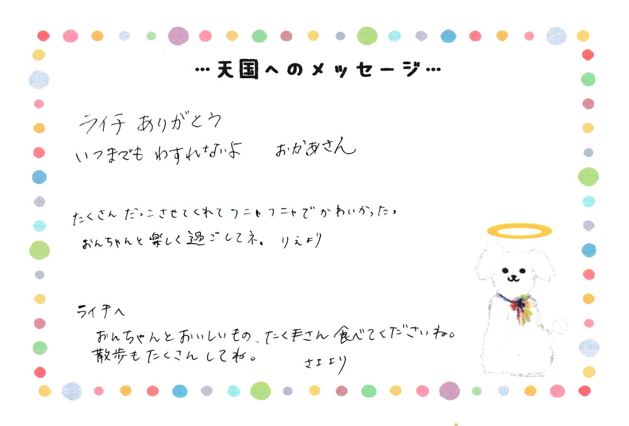 …天国へのメッセージ…
ライチ ありがとう
いつまでも わすれないよ おかあさん
たくさん だっこさせてくれて フニャフニャで かわいかった。
おんちゃんと 楽しく 過ごしてネ。 りえより
ライチへ
おんちゃんとおいしいもの、たくさん 食べてくださいね。
散歩もたくさん してね。 さより